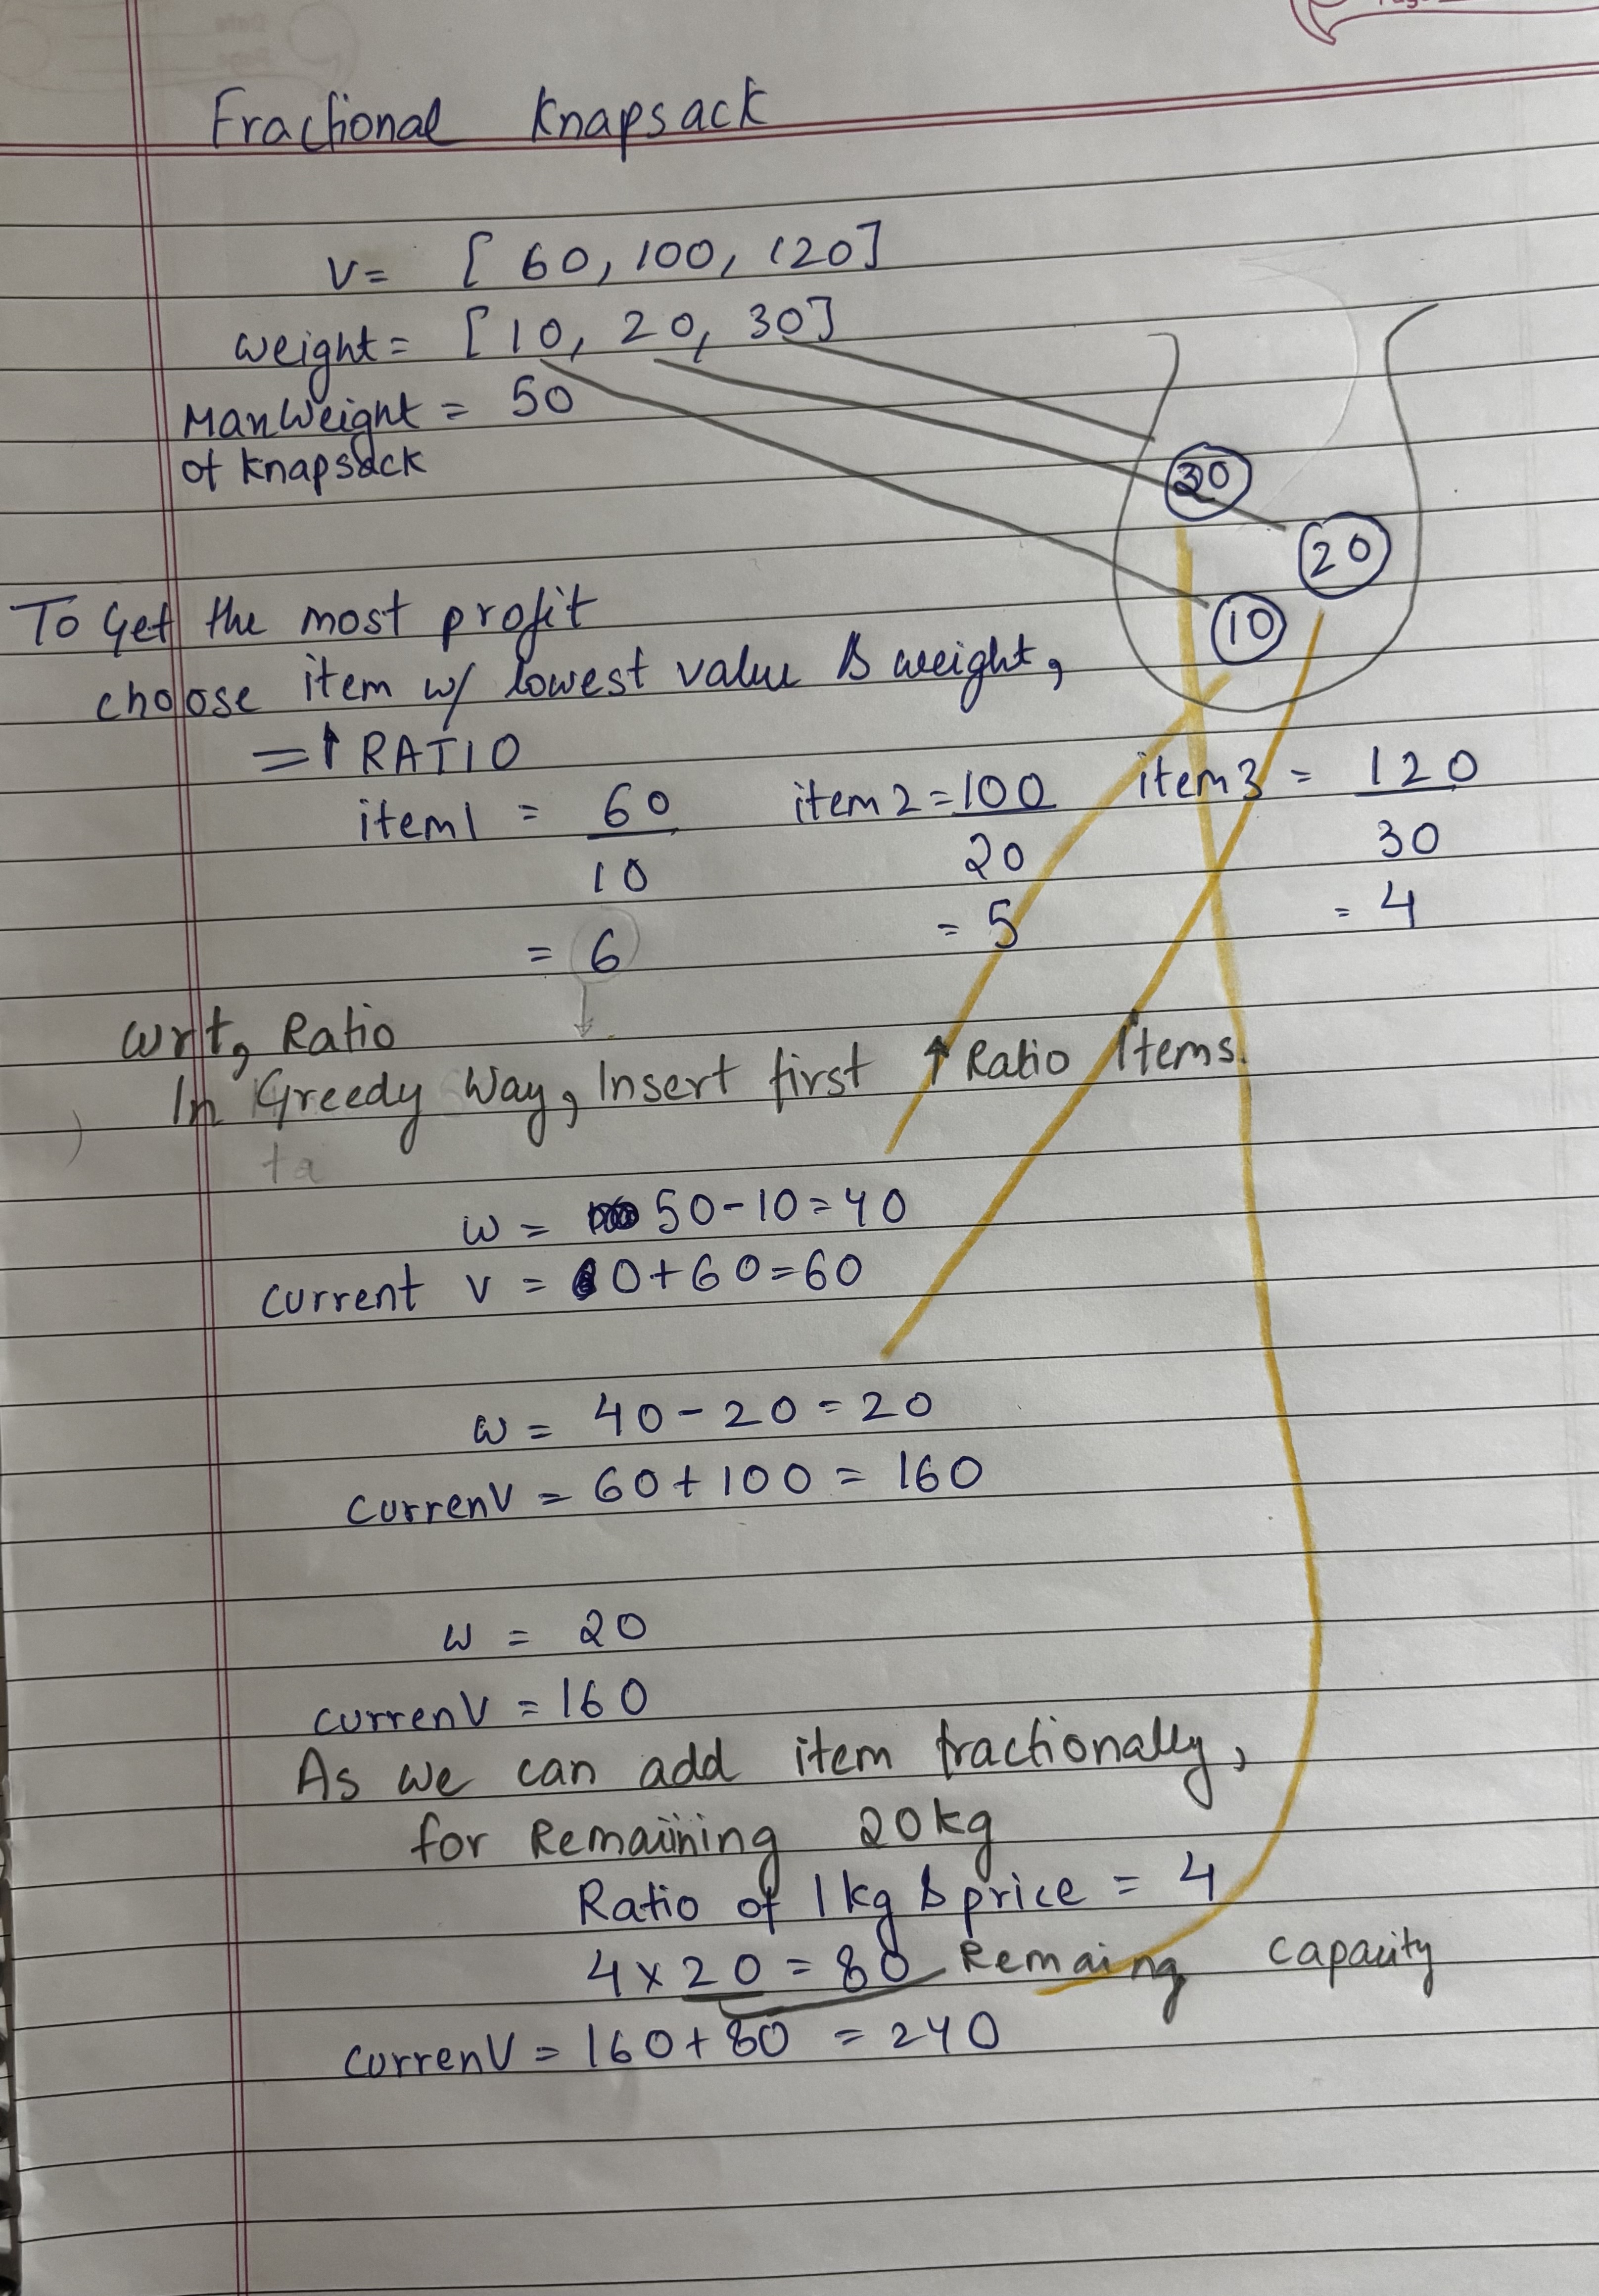 Fractional Knapsack
V= [ 60, 100, 120]
weight= [ 10, 20, 30]
MaxWeight = 50
of knapsack
30
20
10
To Get the most profit
choose item w/ lowest value & weight,
=↑ RATIO
item1 = 60/10 item2 = 100/20 item3 = 120/30
= 6 = 5 = 4
Wrt, Ratio
In Greedy Way, Insert first ↑ Ratio Items.
ta
w = 50-10=40
current v = 0+60=60
w = 40-20=20
currenV = 60+100 = 160
w = 20
currenV = 160
As we can add item fractionally,
for Remaiining 20kg
Ratio of 1kg & price = 4
4×20=80 Remaing capacity
currenV = 160+80 = 240